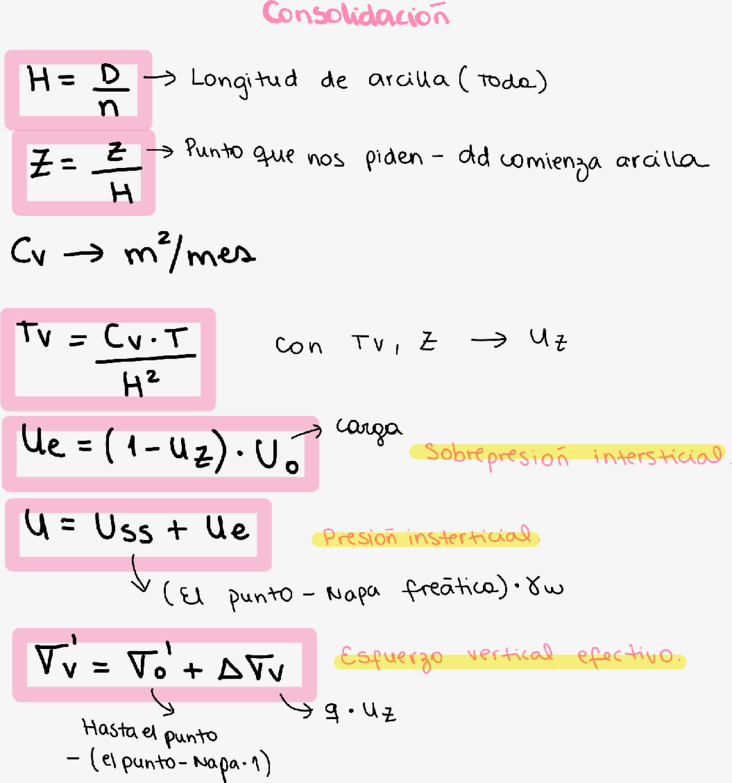 Consolidación
H = D/n → Longitud de arcilla (Toda)
Z = z/H → Punto que nos piden - dd comienza arcilla
Cv → m²/mes
Tv = Cv·T/H² con Tv, Z → Uz
Ue = (1-Uz)·U₀ → carga Sobrepresión intersticial.
U = Uss + Ue Presión insterticial.
(El punto - Napa freática)·γw
σv' = σ₀' + Δσv Esfuerzo vertical efectivo.
q·Uz
Hasta el punto
- (el punto-Napa·1)